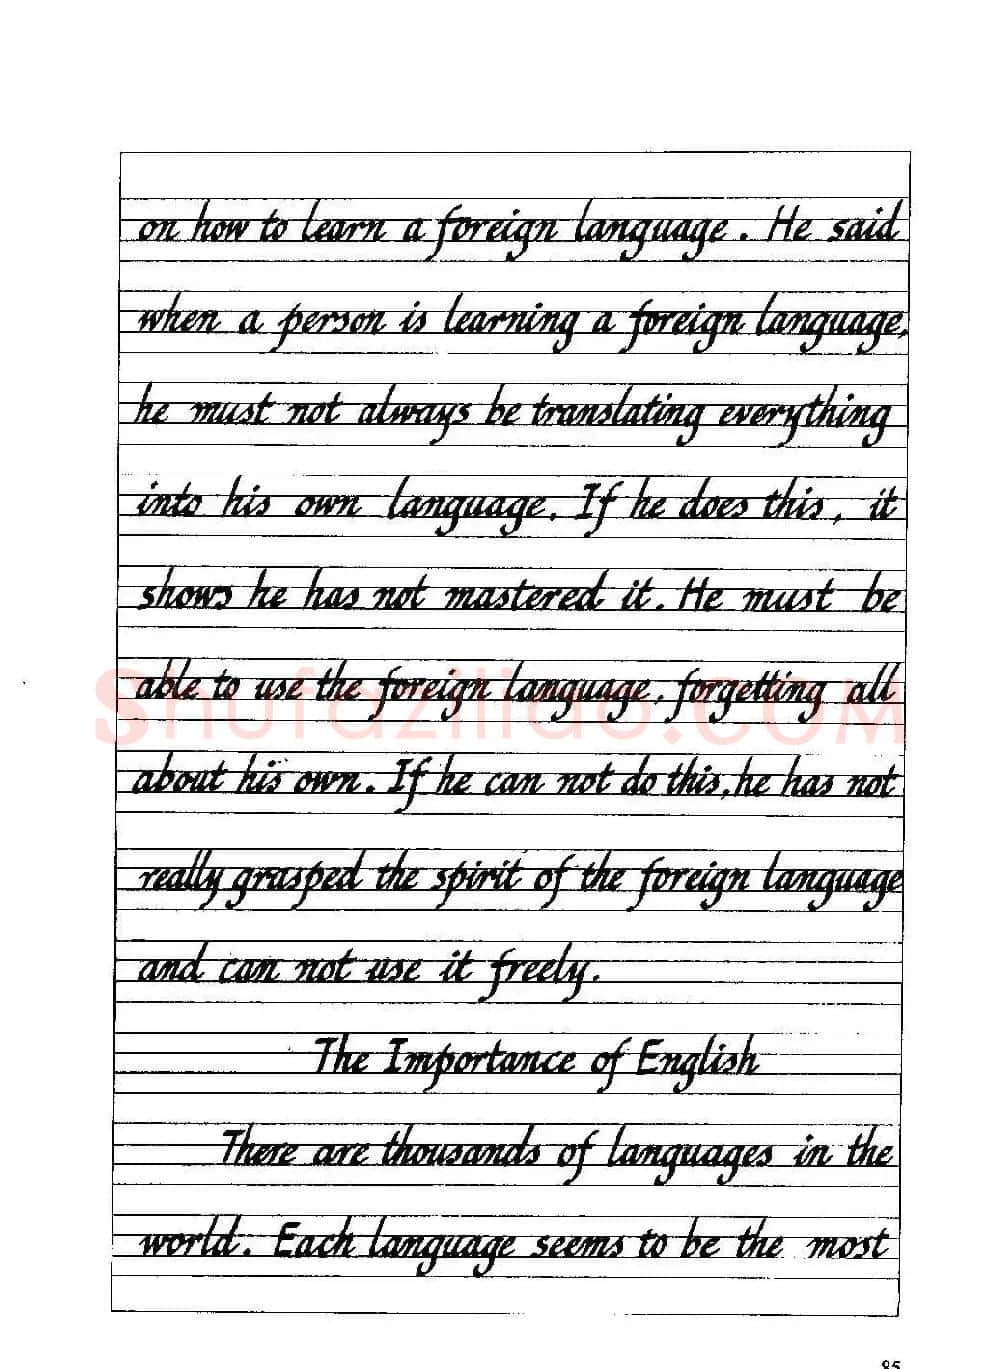 on how to learn a foreign language. He said
when a person is learning a foreign language,
he must not always be translating everything
into his own language. If he does this, it
shows he has not mastered it. He must be
able to use the foreign language, forgetting all
Shufaziliao.COM
about his own. If he can not do this, he has not
really grasped the spirit of the foreign language
and can not use it freely.
The Importance of English
There are thousands of languages in the
world. Each language seems to be the most
85